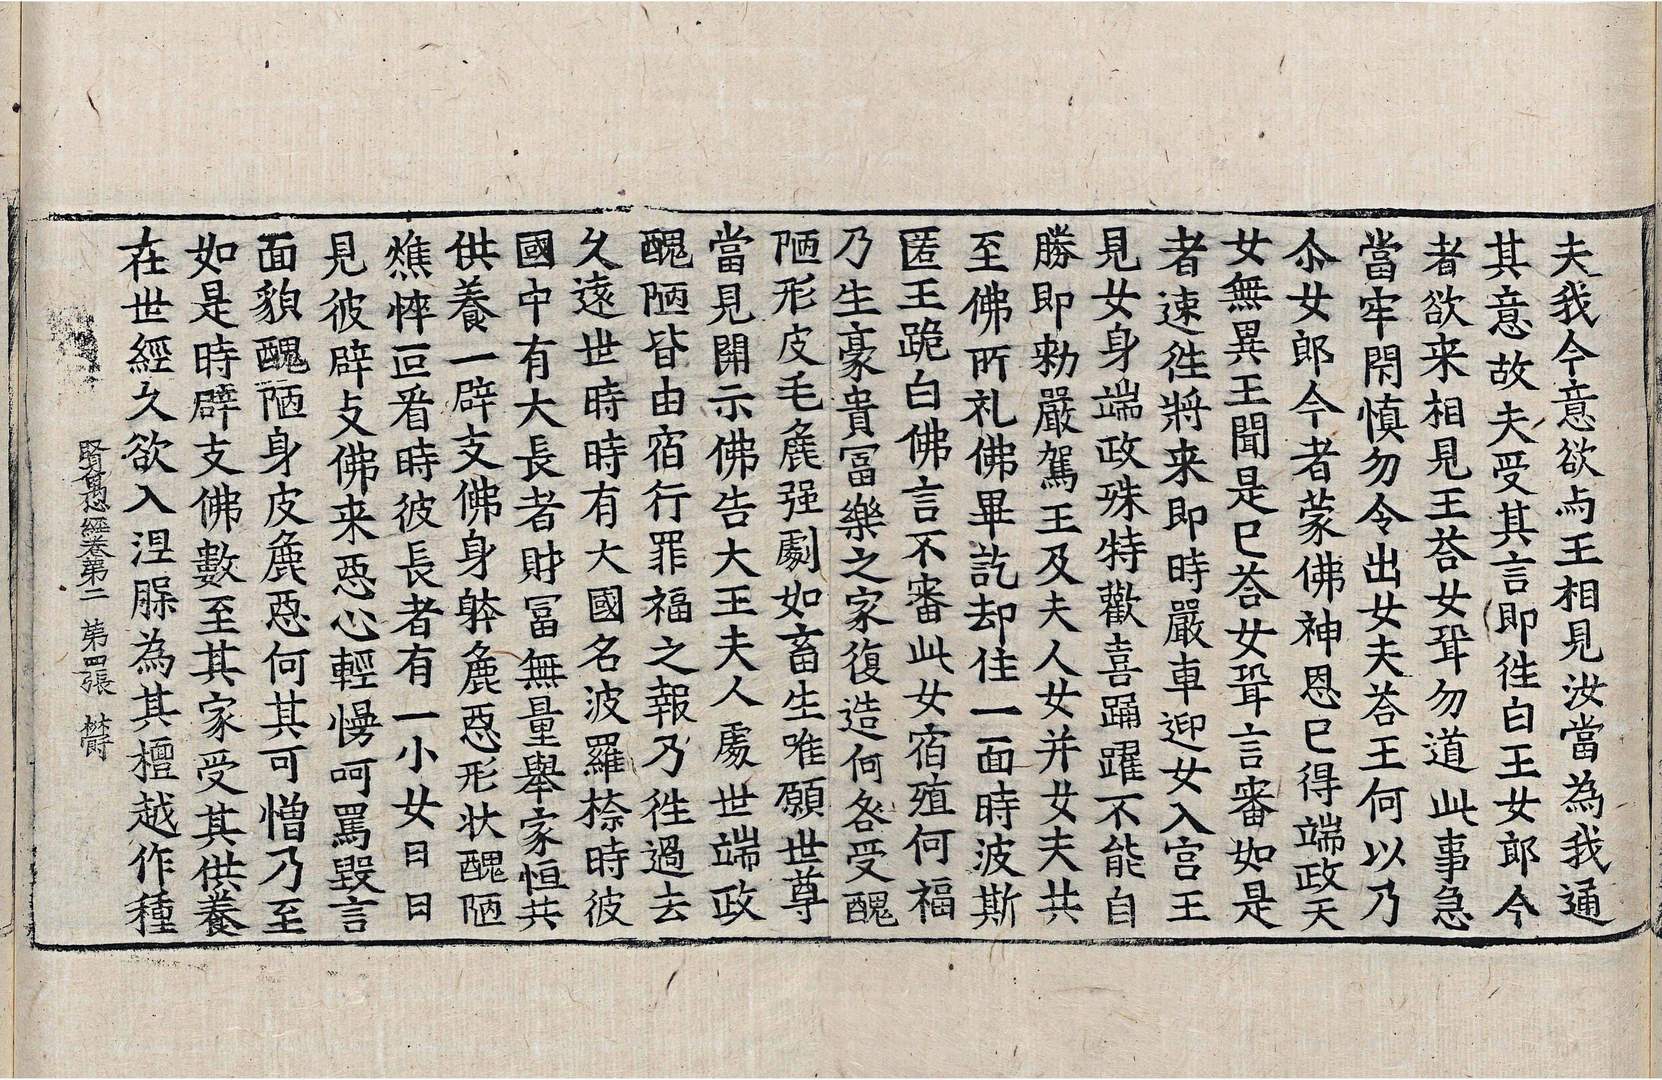 夫我今意欲与王相見汝當為我通
其意故夫受其言即徃白王女郎今
者欲来相見王荅女聟勿道此事急
當牢閇慎勿令出女夫荅王何以乃
尒女郎今者蒙佛神恩已得端政天
女無異王聞是已荅女聟言審如是
者速徃將来即時嚴車迎女入宫王
見女身端政殊特歡喜踊躍不能自
勝即勑嚴駕王及夫人女并女夫共
至佛所礼佛畢訖却住一面時波斯
匿王跪白佛言不審此女宿殖何福
乃生豪貴冨樂之家復造何咎受醜
陋形皮毛麁强劇如畜生唯願世尊
當見開示佛告大王夫人處世端政
醜陋皆由宿行罪福之報乃徃過去
久遠世時時有大國名波羅㮈時彼
國中有大長者財冨無量舉家恒共
供養一辟支佛身躰麁惡形状醜陋
燋悴叵看時彼長者有一小女日日
見彼辟支佛来惡心輕慢呵罵毀言
面貌醜陋身皮麁惡何其可憎乃至
如是時辟支佛數至其家受其供養
在世經久欲入涅槃為其檀越作種
賢愚經卷第二 第四張 欝